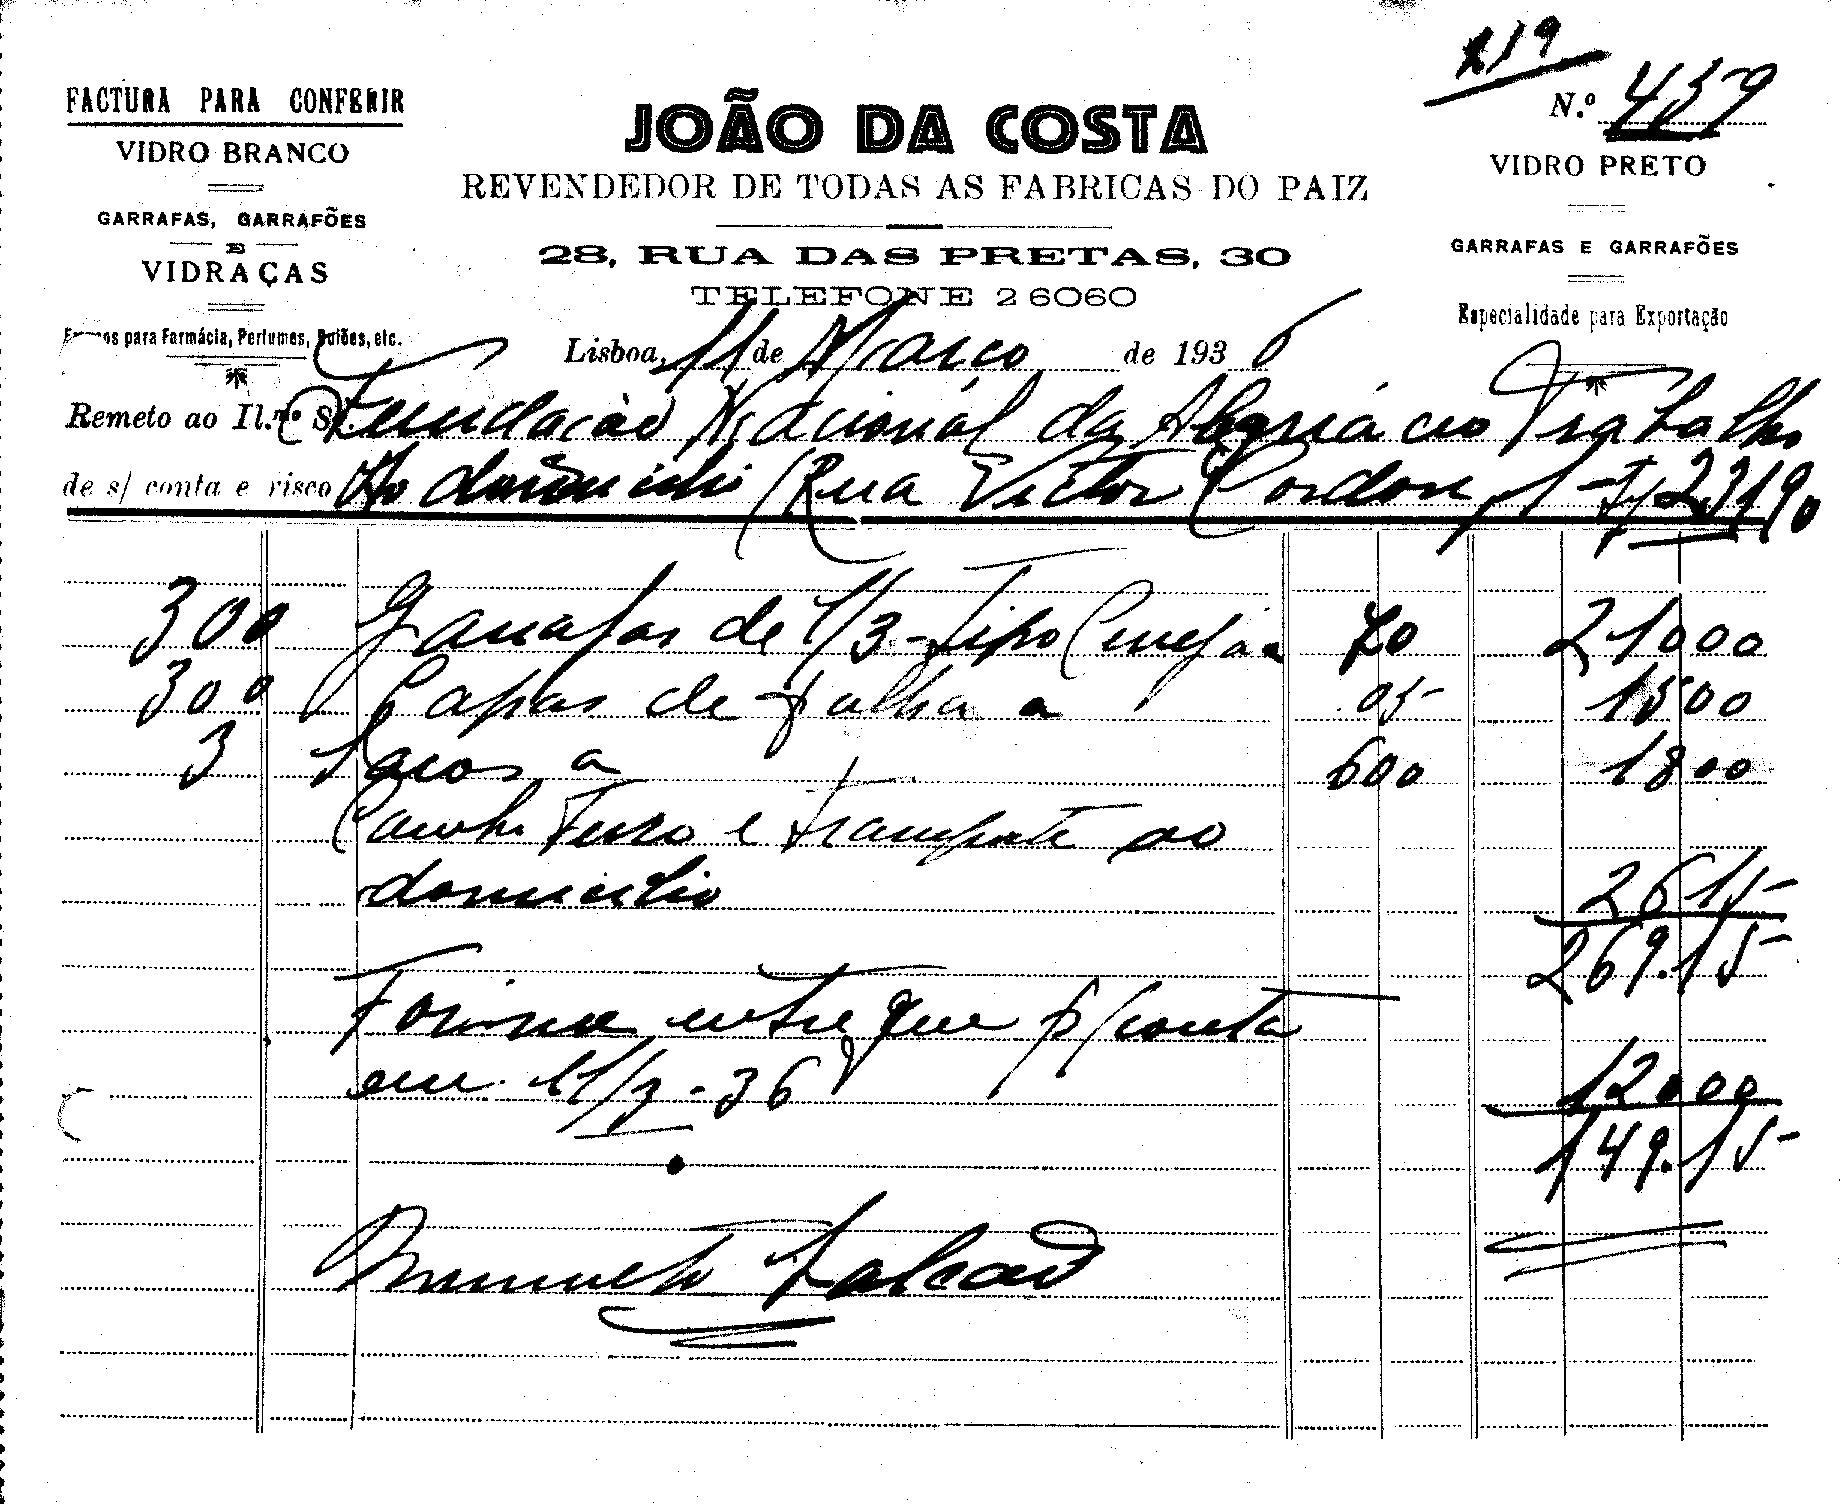 219
FACTURA PARA CONFERIR
VIDRO BRANCO
GARRAFAS, GARRAFÕES
E
VIDRAÇAS
para Farmácia, Perfumes, Boiões, etc.
JOÃO DA COSTA
REVENDEDOR DE TODAS AS FABRICAS DO PAIZ
28, RUA DAS PRETAS, 30
TELEFONE 26060
N.º 439
VIDRO PRETO
GARRAFAS E GARRAFÕES
Especialidade para Exportação
Lisboa, 11 de Março de 1936
Remeto ao Il.mo Sr. Fundação Nacional da Alegria ao Trabalho
de s/ conta e risco Ao domicilio (Rua Victor Cordon, 1 - 23190
300 Garrafas de 1/3 - Tipo Cerveja a 70 21000
300 Capas de palha a 05 1500
3 Sacos a 600 1800
Ferro e transporte ao
domicilio 2615
269.15
entregue p/conta
em 11/3-36 12000
149.15
Falcão